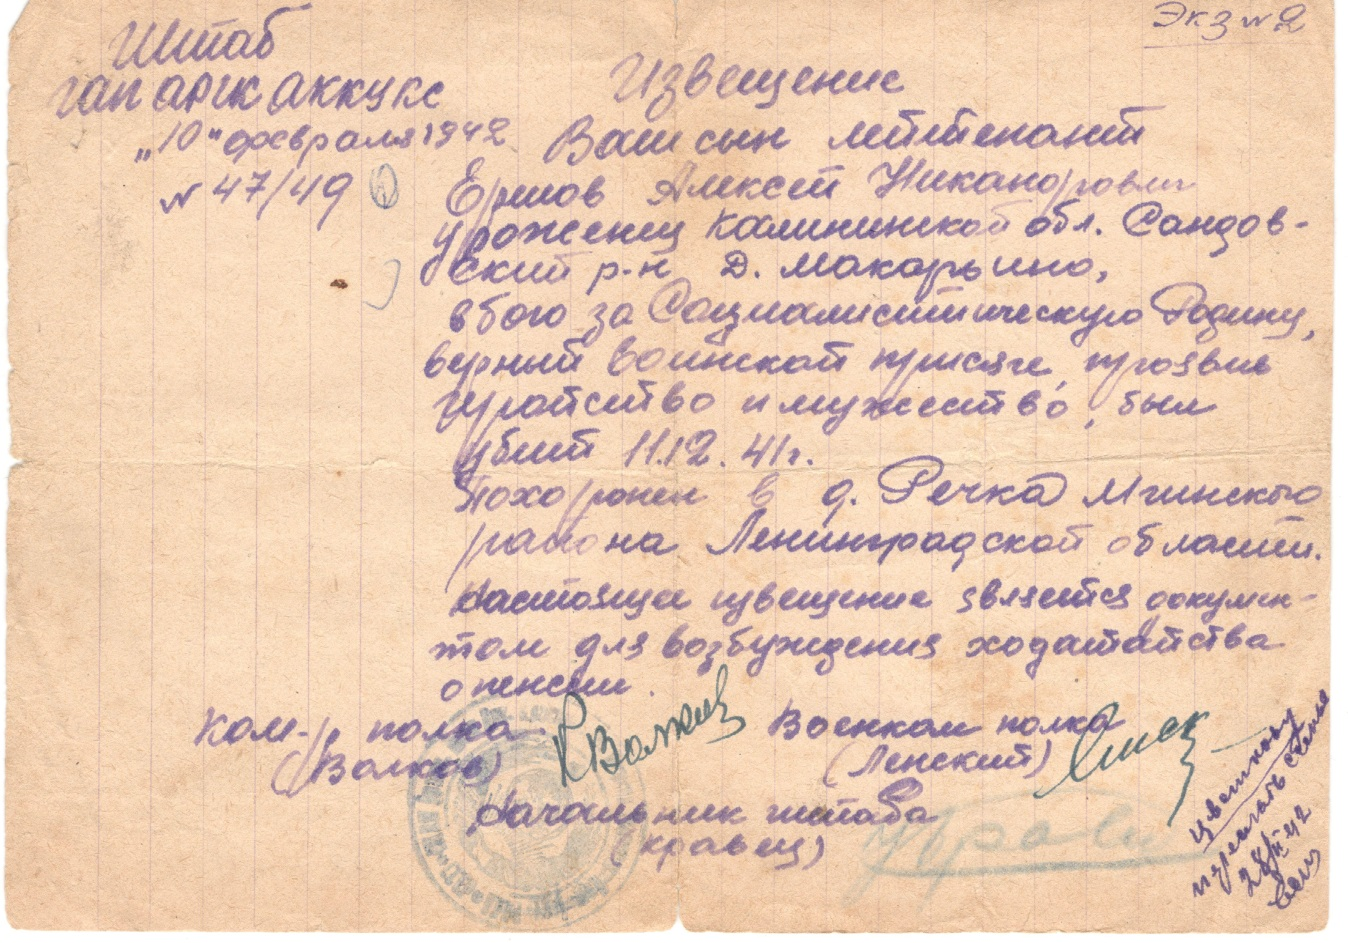 Экз № 2
Штаб
гап аргк аккукс
„10“ февраля 1942
№ 47/49
Извещение
Ваш сын лейтенант
Ершов Алексей Никанорович
уроженец Калининской обл. Сандов-
ский р-н д. Макарьино,
в бою за Социалистическую Родину,
верный воинской присяге, проявив
геройство и мужество, был
убит 11.12.41г.
Похоронен в д. Речка Мгинского
района Ленинградской области.
Настояща извещение является докумен-
том для возбуждения ходатайства
о пенсии.
Ком-р полка
(Волков)
Военком полка
(Ленский)
Начальник штаба
(Кравец)